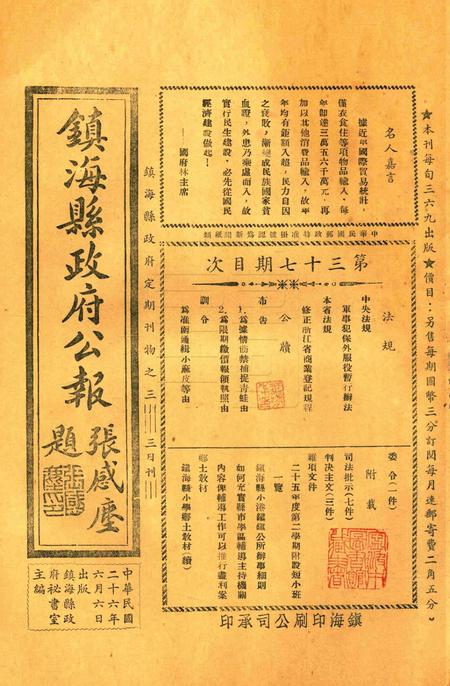 ★本刊每旬三六九出版★價目：另售每期國幣三分訂閱每月連郵寄費二角五分。
名人嘉言
據近年國際貿易統計，
僅衣食住等項物品輸入，每
年卽達三萬五六千萬元，再
加以其他消費品輸入，故平
年均有鉅額入超，民力自因
之衰敗，漸變成民族國家貧
血證，外患乃乘虛而入，故
實行民生建設，必先從國民
經濟建設做起！
——國府林主席
中華民國郵政特准掛號認爲新聞紙類
第三十七期目次
法規
中央法規
軍事犯保外服役暫行辦法
本省法規
修正浙江省商業登記規程
公牘
布告
1.爲據情布禁捕捉靑蛙由
2.爲限期繳價報領執照由
訓令
爲准函通緝小麻皮等由
委令(一件)
附載
司法批示(七件)
判决主文(三件)
雜項文件
二十五年度第二學期附設短小班
一覽
鎭海縣小港鎭鎭公所辦事細則
如何充實縣市學區輔導主持機關
內容俾輔導工作可以推行盡利案
鄉土教材
鎭海縣小學鄉土教材(續)
鎭海印刷公司承印
鎭海縣政府定期刊物之三——三日刊——
鎭海縣政府公報
張感塵
題
中華民國
二十六年
六月六日
出版
鎭海縣政
府祕書室
主編